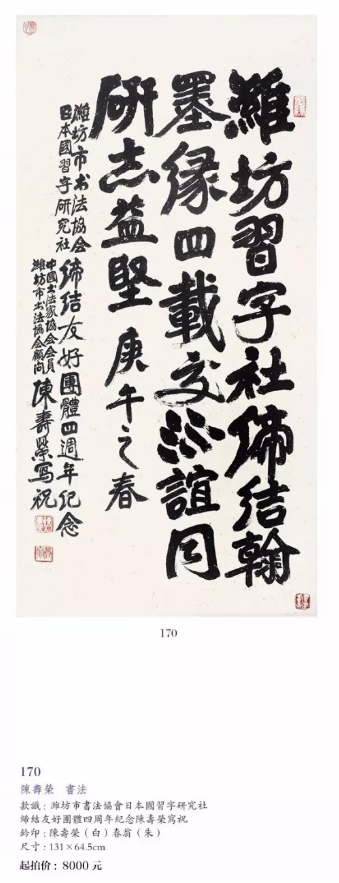 濰坊習字社締結翰
墨缘四載交誼同
研志益堅 庚午之春
濰坊市书法協会
日本國習字研究社
締结友好團體四週年纪念
中國书法家協会会員
濰坊市书法協会顧问
陳壽榮寫祝
170
170
陳壽榮 書法
款識：濰坊市書法協會日本國習字研究社
締結友好團體四周年纪念陳壽榮寫祝
鈐印：陳壽榮（白）春翁（朱）
尺寸：131×64.5cm
起拍价：8000 元